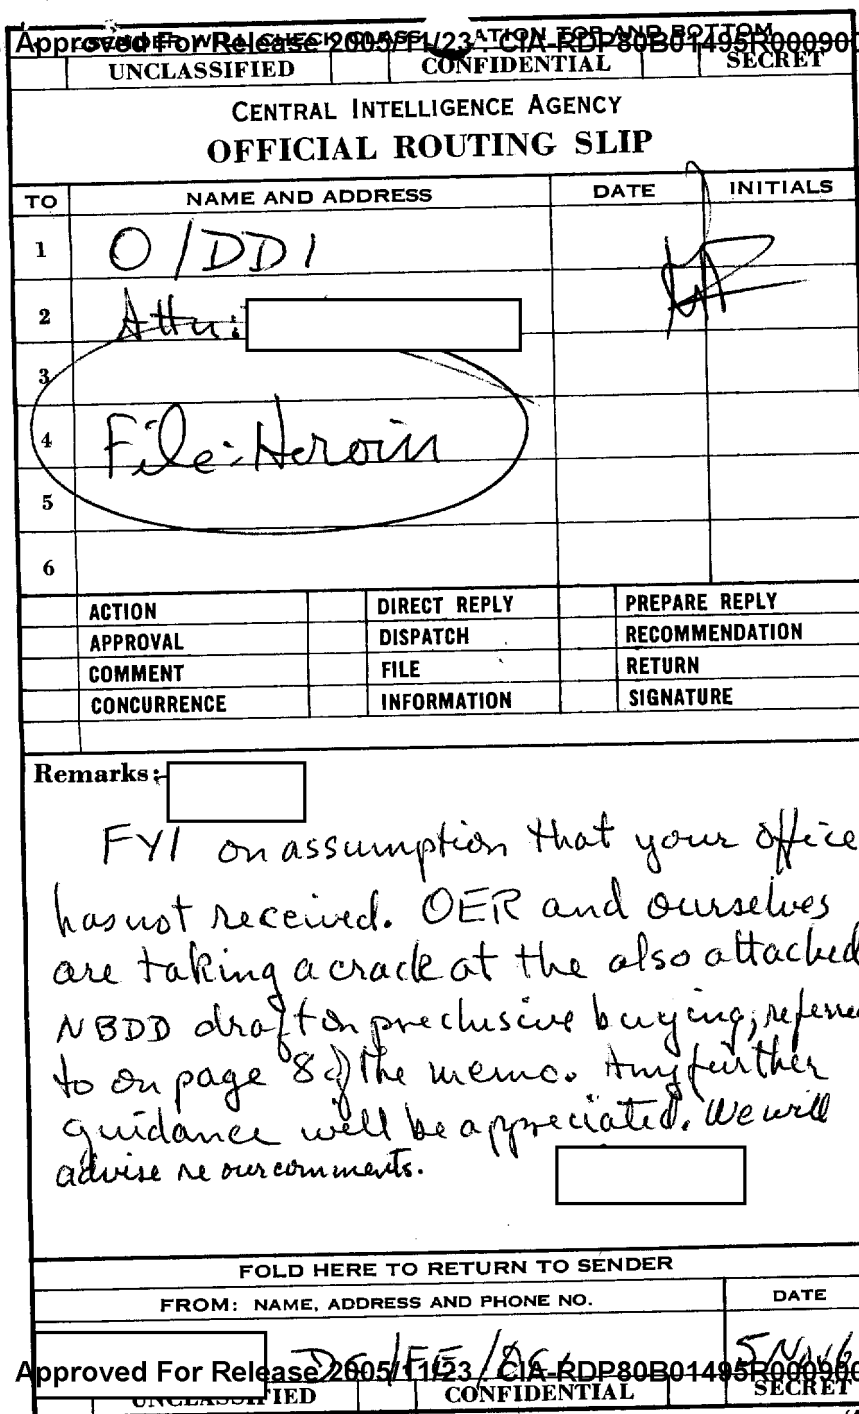 Approved For Release 2005/11/23 : CIA-RDP80B01495R000900
UNCLASSIFIED CONFIDENTIAL SECRET
CENTRAL INTELLIGENCE AGENCY
OFFICIAL ROUTING SLIP
TO NAME AND ADDRESS DATE INITIALS
1 O/DDI
2 Attn:
3
4 File: Heroin
5
6
ACTION DIRECT REPLY PREPARE REPLY
APPROVAL DISPATCH RECOMMENDATION
COMMENT FILE RETURN
CONCURRENCE INFORMATION SIGNATURE
Remarks:
FYI on assumption that your office
has not received. OER and ourselves
are taking a crack at the also attached
NBDD draft on preclusive buying, referre
to on page 8 of the memo. Any further
guidance will be appreciated. We will
advise re our comments.
FOLD HERE TO RETURN TO SENDER
FROM: NAME, ADDRESS AND PHONE NO. DATE
5 Nov
Approved For Release 2005/11/23 : CIA-RDP80B01495R000900
UNCLASSIFIED CONFIDENTIAL SECRET